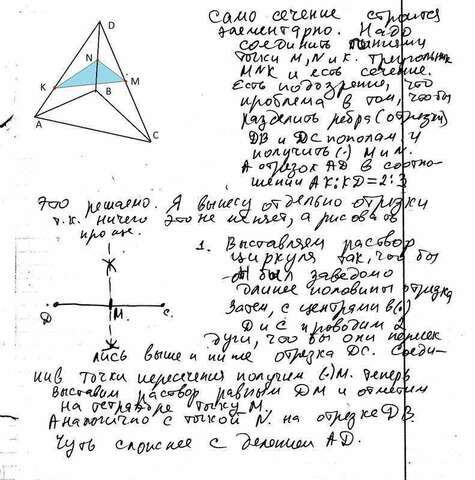 D
N
K
M
B
A
C
само сечение строится
элементарно. Надо
соединить линиями
точки M, N и K. треугольник
MNK и есть сечение.
Есть подозрение, что
проблема в том, чтобы
разделить рёбра (отрезки)
DB и DC пополам и
получить (·) M и N.
А отрезок AD в соотно-
шении AK:KD=2:3
Это решаемо. Я вынесу отдельно отрезки
т.к. ничего это не меняет, а рисовать
проще.
1. Выставляем раствор
циркуля так, что бы
он был заведомо
длиннее половины отрезка
Затем, с центрами в (·)
D и C проводим 2
дуги, что бы они пересек
D M. C.
лись выше и ниже отрезка DC. Соеди-
нив точки пересечения получим (·) M. теперь
выставим раствор равным DM и отметим
на тетраэдре точку M.
Аналогично с точкой N. на отрезке DB.
Чуть сложнее с делением AD.